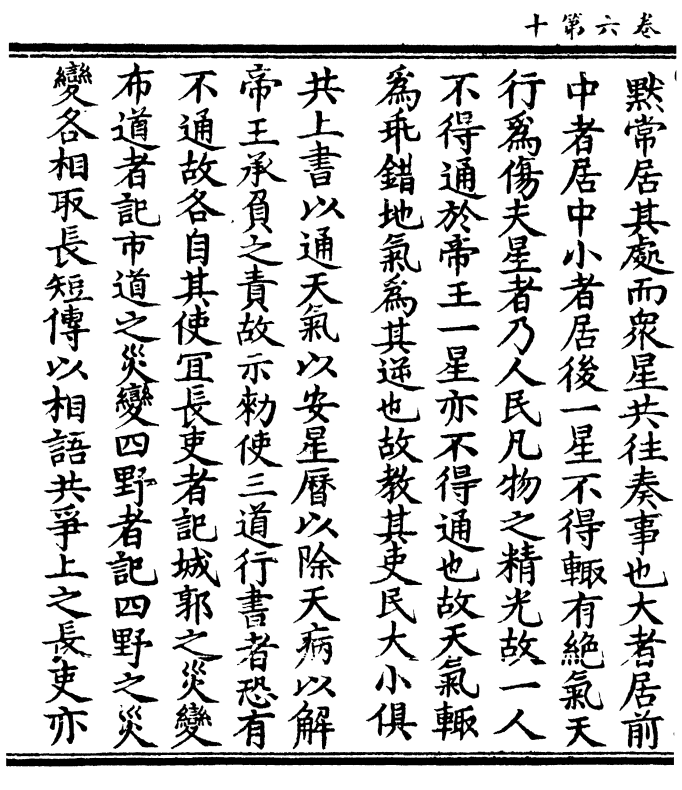 卷六第十
默常居其處而衆星共往奏事也大者居前
中者居中小者居後一星不得輙有絕氣天
行爲傷夫星者乃人民凡物之精光故一人
不得通於帝王一星亦不得通也故天氣輙
爲乖錯地氣爲其逆也故教其吏民大小俱
共上書以通天氣以安星曆以除天病以解
帝王承負之責故示勑使三道行書者恐有
不通故各自其使冝長吏者記城郭之災變
布道者記市道之災變四野者記四野之災
變各相取長短傳以相語共爭上之長吏亦